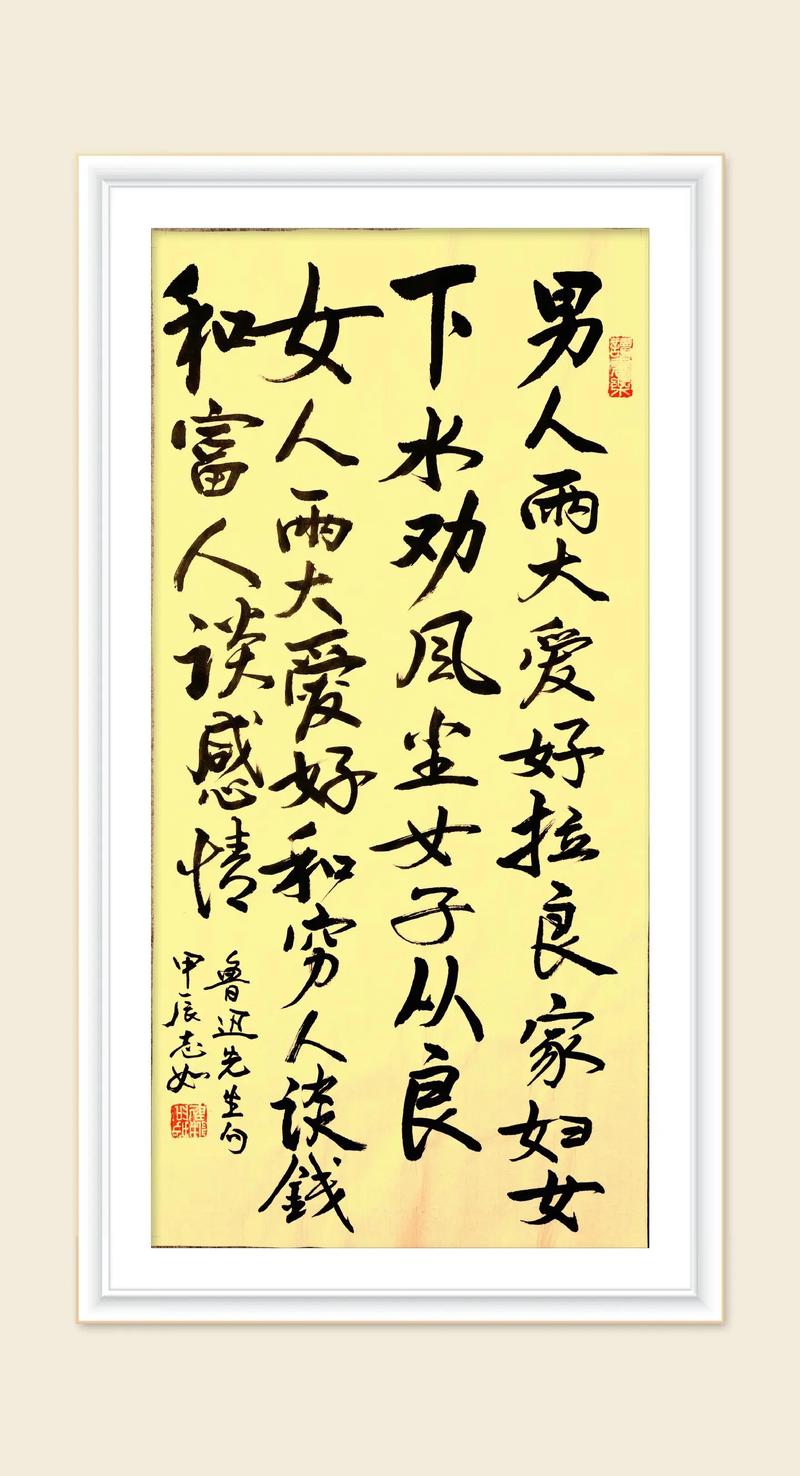 男人兩大爱好拉良家妇女
下水劝风尘女子从良
女人兩大愛好和穷人谈錢
和富人谈感情
鲁迅先生句
甲辰志如